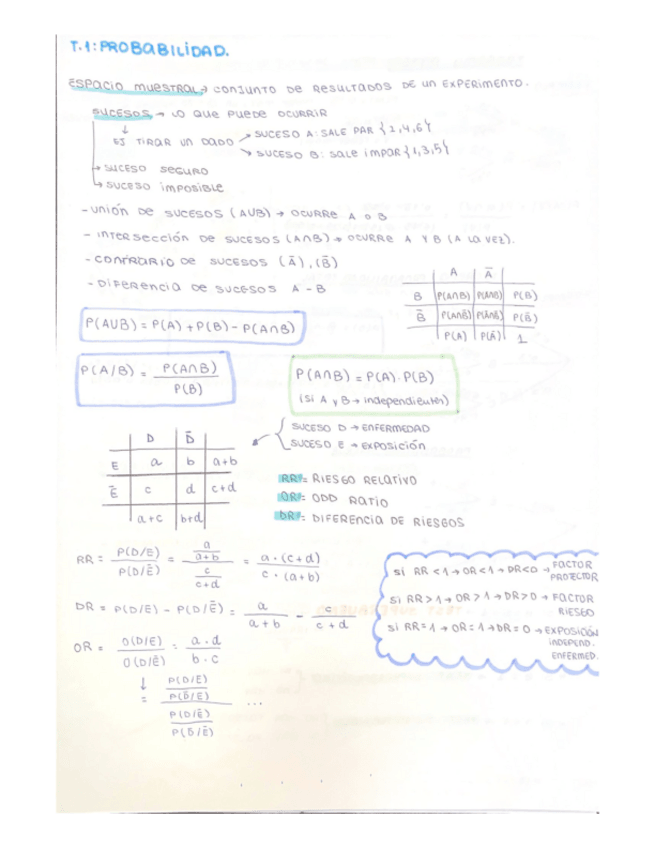 T.1: PROBABILIDAD.
ESPACIO MUESTRAL → CONJUNTO DE RESULTADOS DE UN EXPERIMENTO.
SUCESOS → LO QUE PUEDE OCURRIR
↓
EJ TIRAR UN DADO → SUCESO A: SALE PAR {2,4,6}
→ SUCESO B: SALE IMPAR {1,3,5}
→ SUCESO SEGURO
→ SUCESO IMPOSIBLE
- UNIÓN DE SUCESOS (A∪B) → OCURRE A O B
- INTERSECCIÓN DE SUCESOS (A∩B) → OCURRE A Y B (A LA VEZ).
- CONTRARIO DE SUCESOS (Ā), (B̄)
- DIFERENCIA DE SUCESOS A - B
A Ā
B P(A∩B) P(Ā∩B) P(B)
B̄ P(A∩B̄) P(Ā∩B̄) P(B̄)
P(A) P(Ā) 1
P(A∪B) = P(A) + P(B) - P(A∩B)
P(A/B) = P(A∩B) / P(B)
P(A∩B) = P(A) · P(B)
(Si A y B → independientes)
SUCESO D → ENFERMEDAD
SUCESO E → EXPOSICIÓN
D D̄
E a b a+b
Ē c d c+d
a+c b+d
RR = RIESGO RELATIVO
OR = ODD RATIO
DR = DIFERENCIA DE RIESGOS
RR = P(D/E) / P(D/Ē) = (a / a+b) / (c / c+d) = a · (c+d) / c · (a+b)
DR = P(D/E) - P(D/Ē) = a / a+b - c / c+d
OR = O(D/E) / O(D/Ē) = a · d / b · c
↓
= (P(D/E) / P(D̄/E)) / (P(D/Ē) / P(D̄/Ē)) ...
Si RR < 1 → OR < 1 → DR < 0 → FACTOR
PROTECTOR
Si RR > 1 → OR > 1 → DR > 0 → FACTOR
RIESGO
Si RR = 1 → OR = 1 → DR = 0 → EXPOSICIÓN
INDEPEND.
ENFERMED.